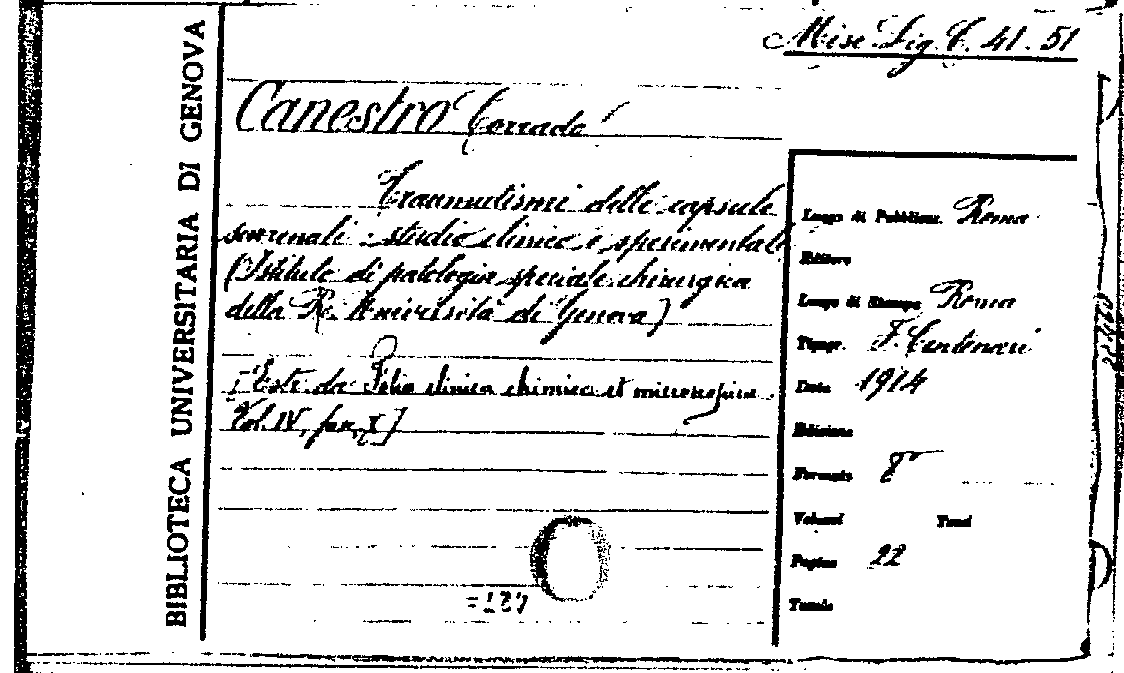 BIBLIOTECA UNIVERSITARIA DI GENOVA
Misc. Lig. C. 41. 51
Canestro Corrado
Traumatismi delle capsule
surrenali : studio clinico e sperimentale
(Istituto di patologia speciale chirurgica
della R. Università di Genova)
[Estr. da Folia clinica chimica et microscopica
Vol. IV, fasc. X]
Luogo di Pubblicaz. Roma
Editore
Luogo di Stampa Roma
Tipogr. F. Centenari
Data 1914
Edizione
Formato 8°
Volumi Tomi
Pagine 22
Tavole